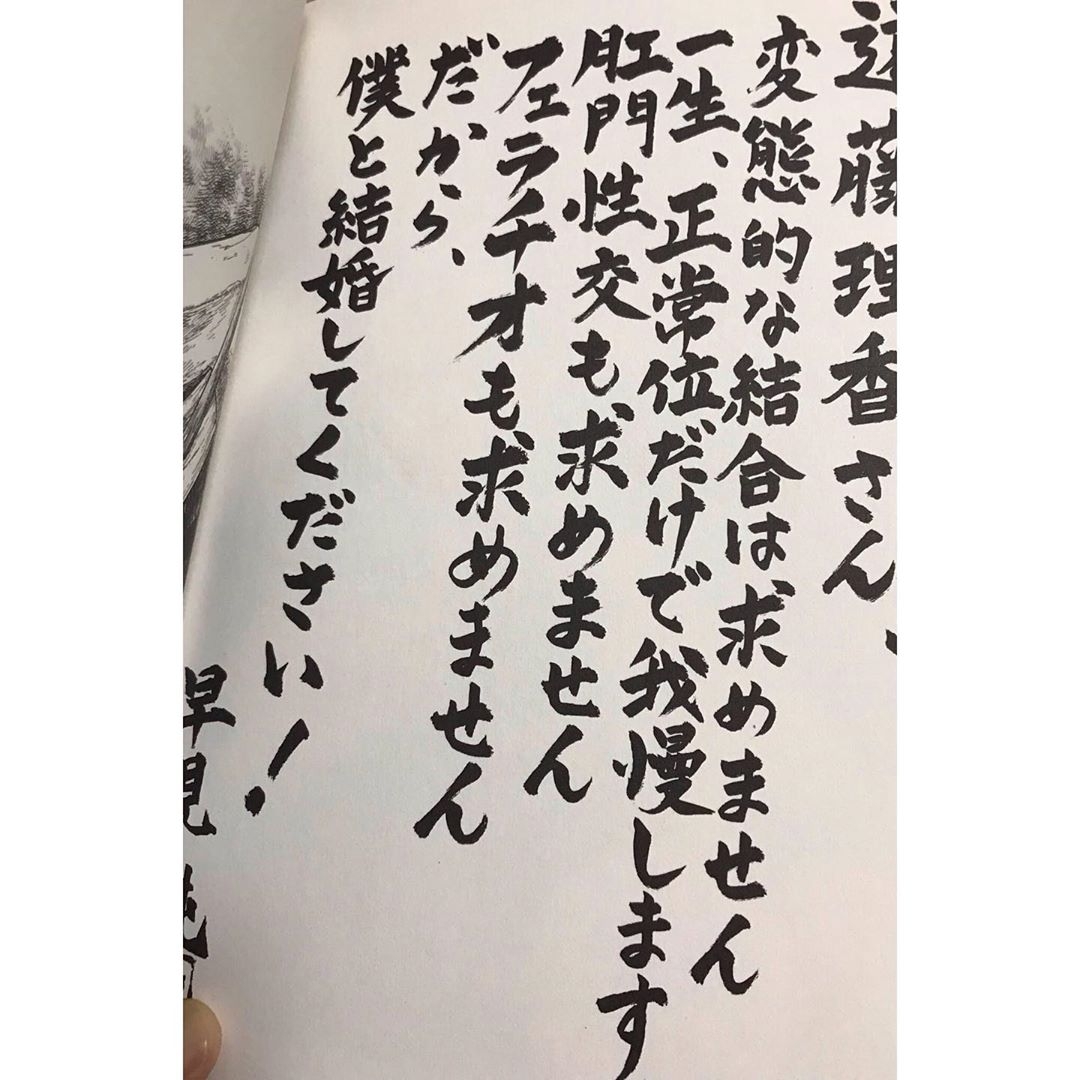 近藤理香さん、
変態的な結合は求めません
一生、正常位だけで我慢します
肛門性交も求めません
フェラチオも求めません
だから、
僕と結婚してください!
早見純